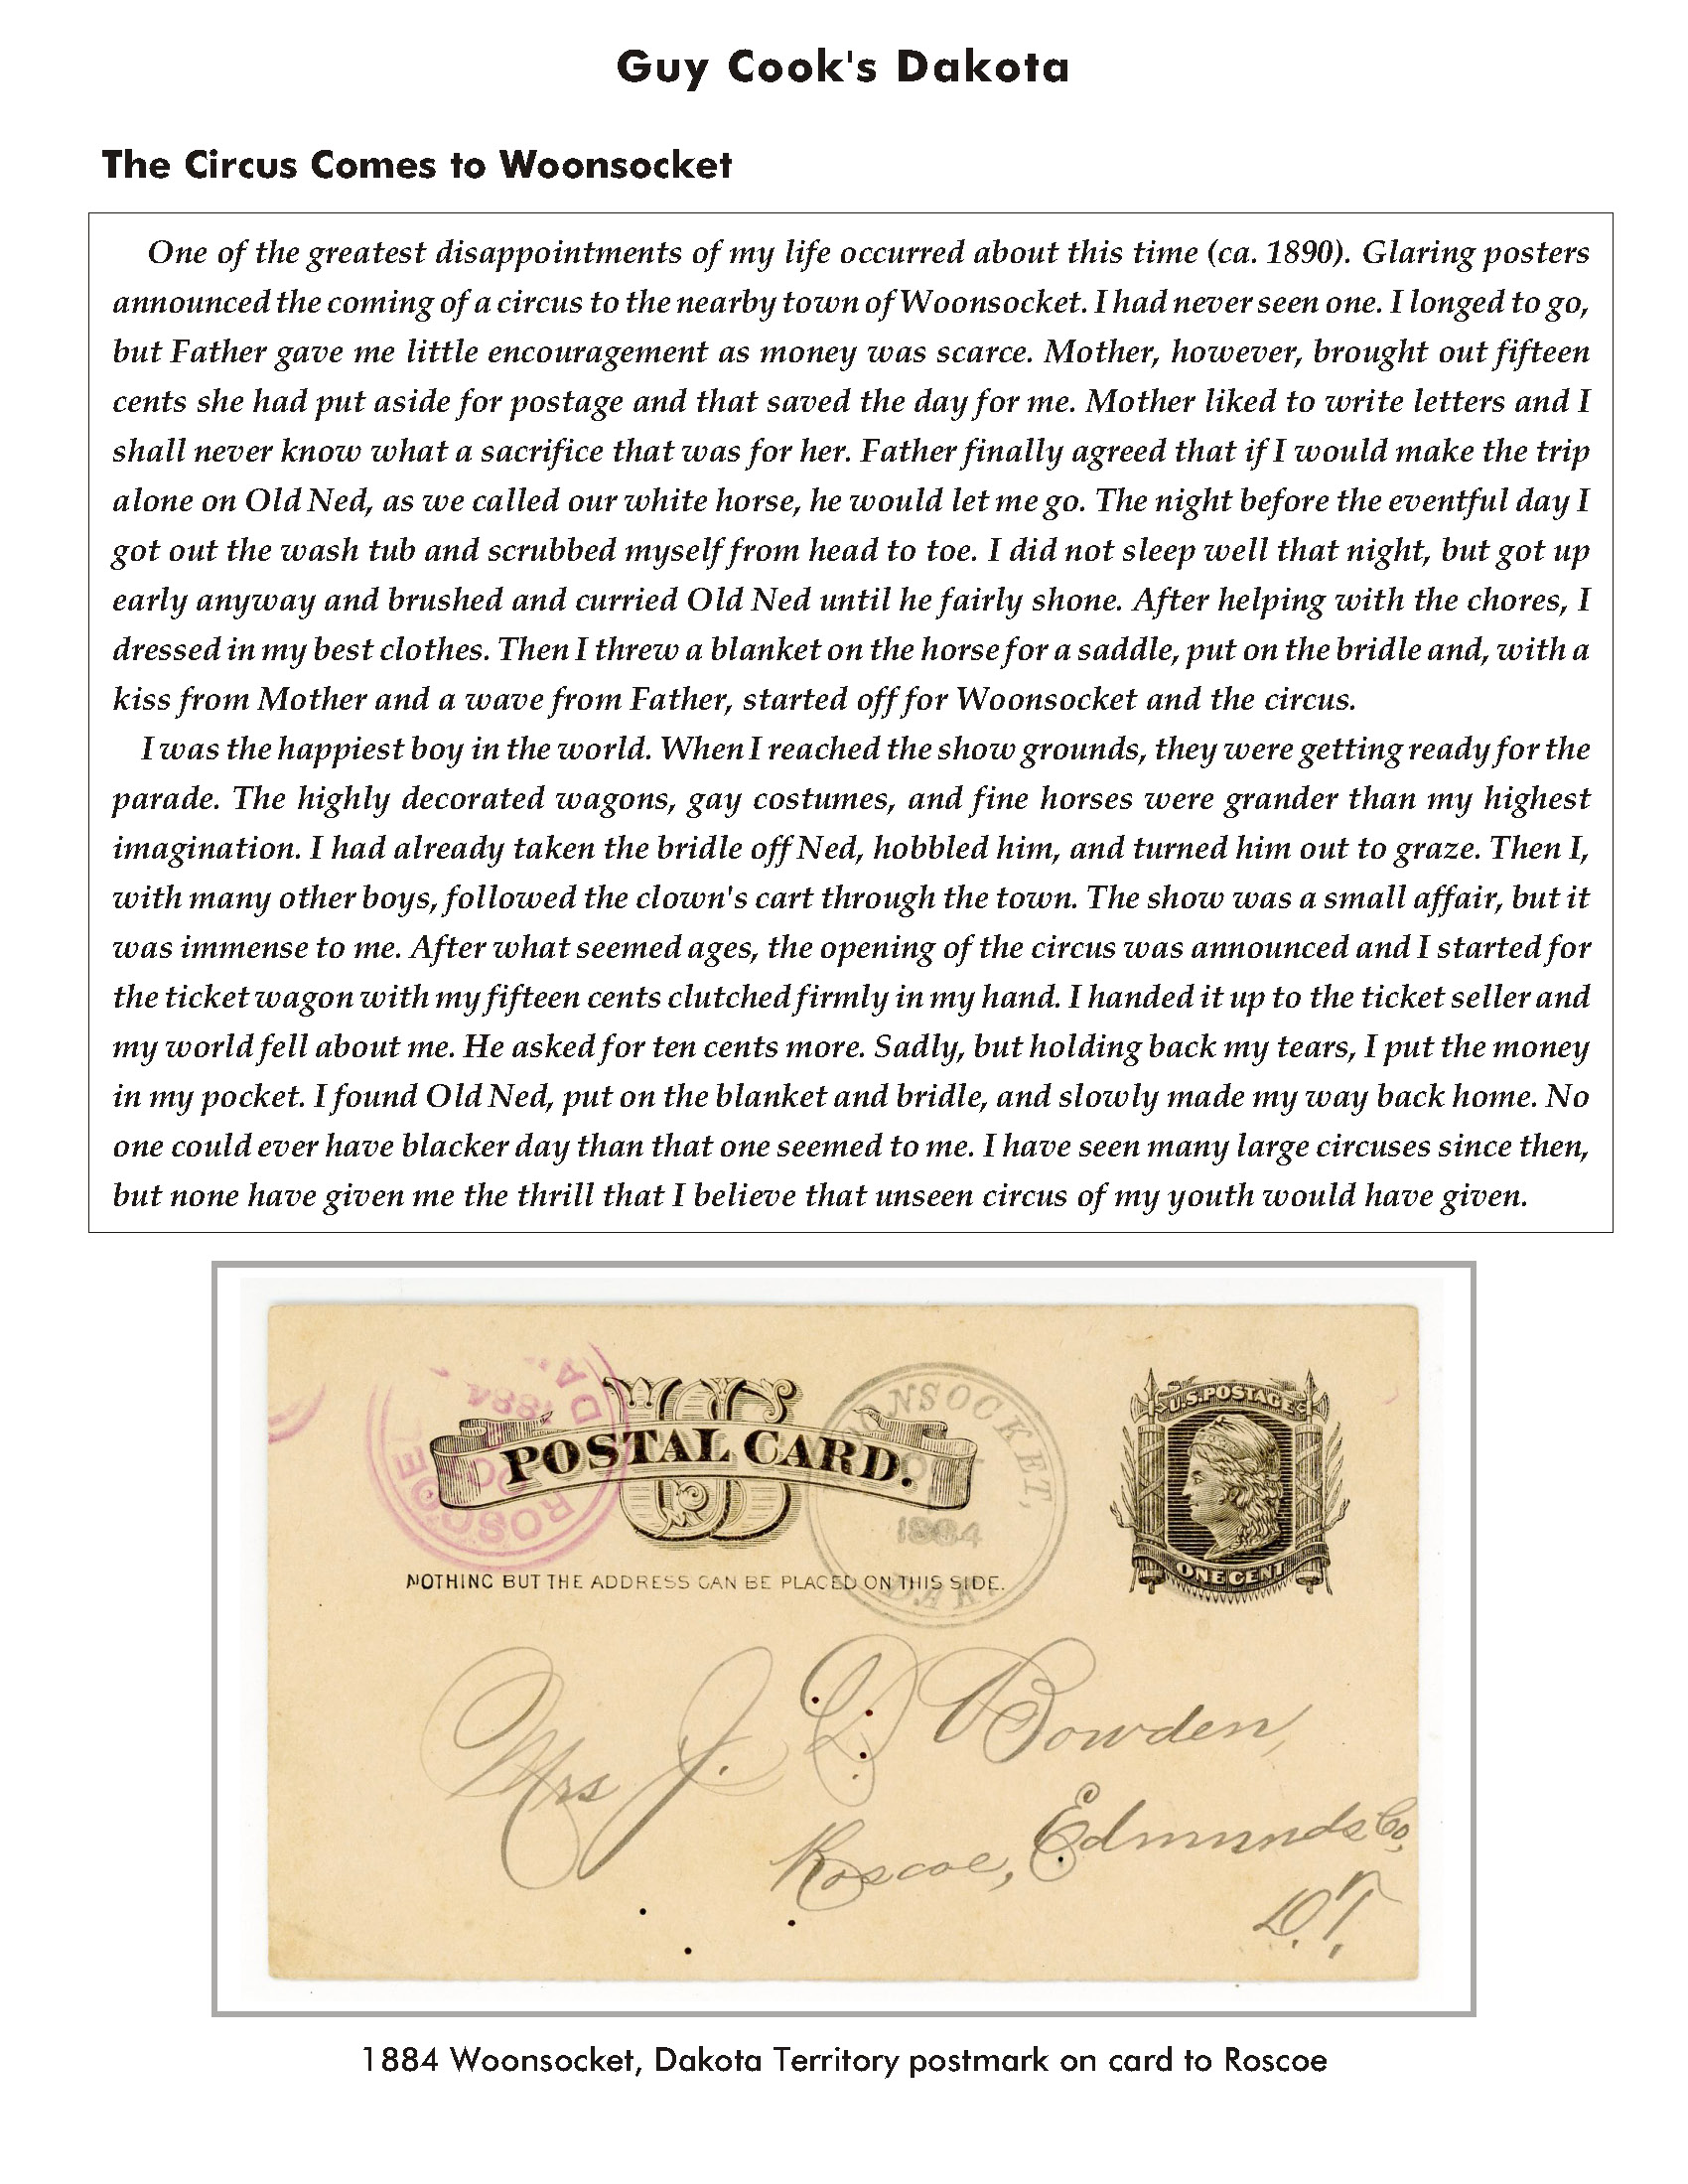 Guy Cook's Dakota
The Circus Comes to Woonsocket
One of the greatest disappointments of my life occurred about this time (ca. 1890). Glaring posters
announced the coming of a circus to the nearby town of Woonsocket. I had never seen one. I longed to go,
but Father gave me little encouragement as money was scarce. Mother, however, brought out fifteen
cents she had put aside for postage and that saved the day for me. Mother liked to write letters and I
shall never know what a sacrifice that was for her. Father finally agreed that if I would make the trip
alone on Old Ned, as we called our white horse, he would let me go. The night before the eventful day I
got out the wash tub and scrubbed myself from head to toe. I did not sleep well that night, but got up
early anyway and brushed and curried Old Ned until he fairly shone. After helping with the chores, I
dressed in my best clothes. Then I threw a blanket on the horse for a saddle, put on the bridle and, with a
kiss from Mother and a wave from Father, started off for Woonsocket and the circus.
I was the happiest boy in the world. When I reached the show grounds, they were getting ready for the
parade. The highly decorated wagons, gay costumes, and fine horses were grander than my highest
imagination. I had already taken the bridle off Ned, hobbled him, and turned him out to graze. Then I,
with many other boys, followed the clown's cart through the town. The show was a small affair, but it
was immense to me. After what seemed ages, the opening of the circus was announced and I started for
the ticket wagon with my fifteen cents clutched firmly in my hand. I handed it up to the ticket seller and
my world fell about me. He asked for ten cents more. Sadly, but holding back my tears, I put the money
in my pocket. I found Old Ned, put on the blanket and bridle, and slowly made my way back home. No
one could ever have blacker day than that one seemed to me. I have seen many large circuses since then,
but none have given me the thrill that I believe that unseen circus of my youth would have given.
US
POSTAL CARD.
NOTHING BUT THE ADDRESS CAN BE PLACED ON THIS SIDE.
1884
U.S. POSTAGE
ONE CENT
Mrs J. D Bowden,
Roscoe, Edmunds Co,
D.T.
1884 Woonsocket, Dakota Territory postmark on card to Roscoe